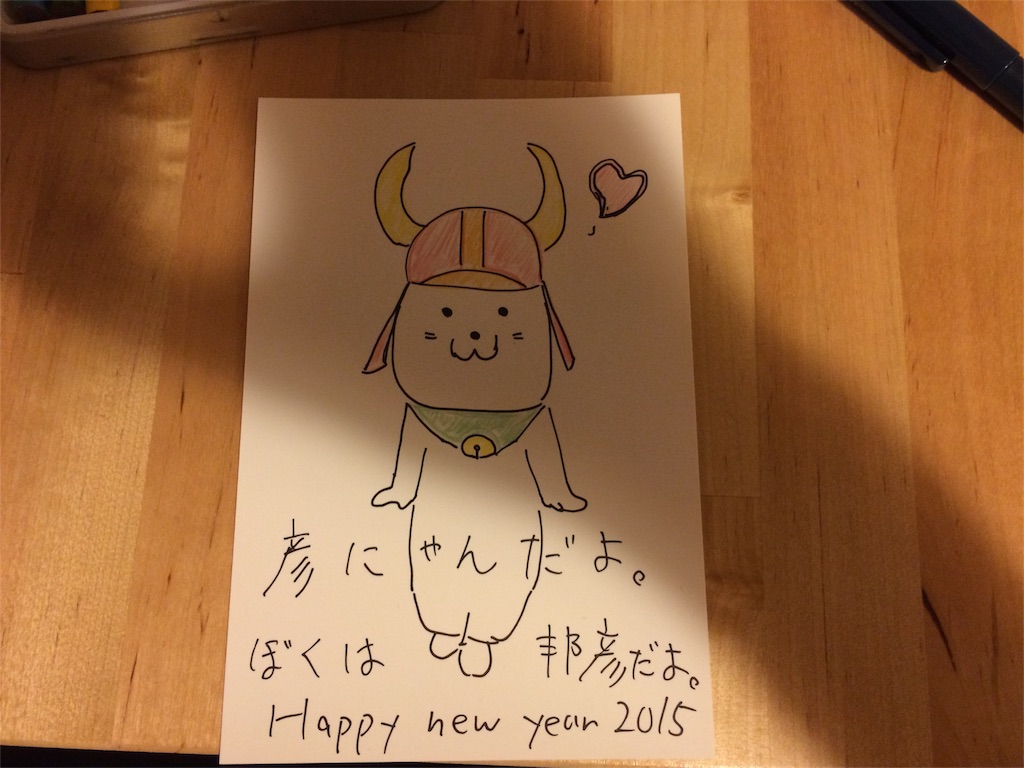 彦にゃんだよ。
ぼくは 邦彦だよ。
Happy new year 2015